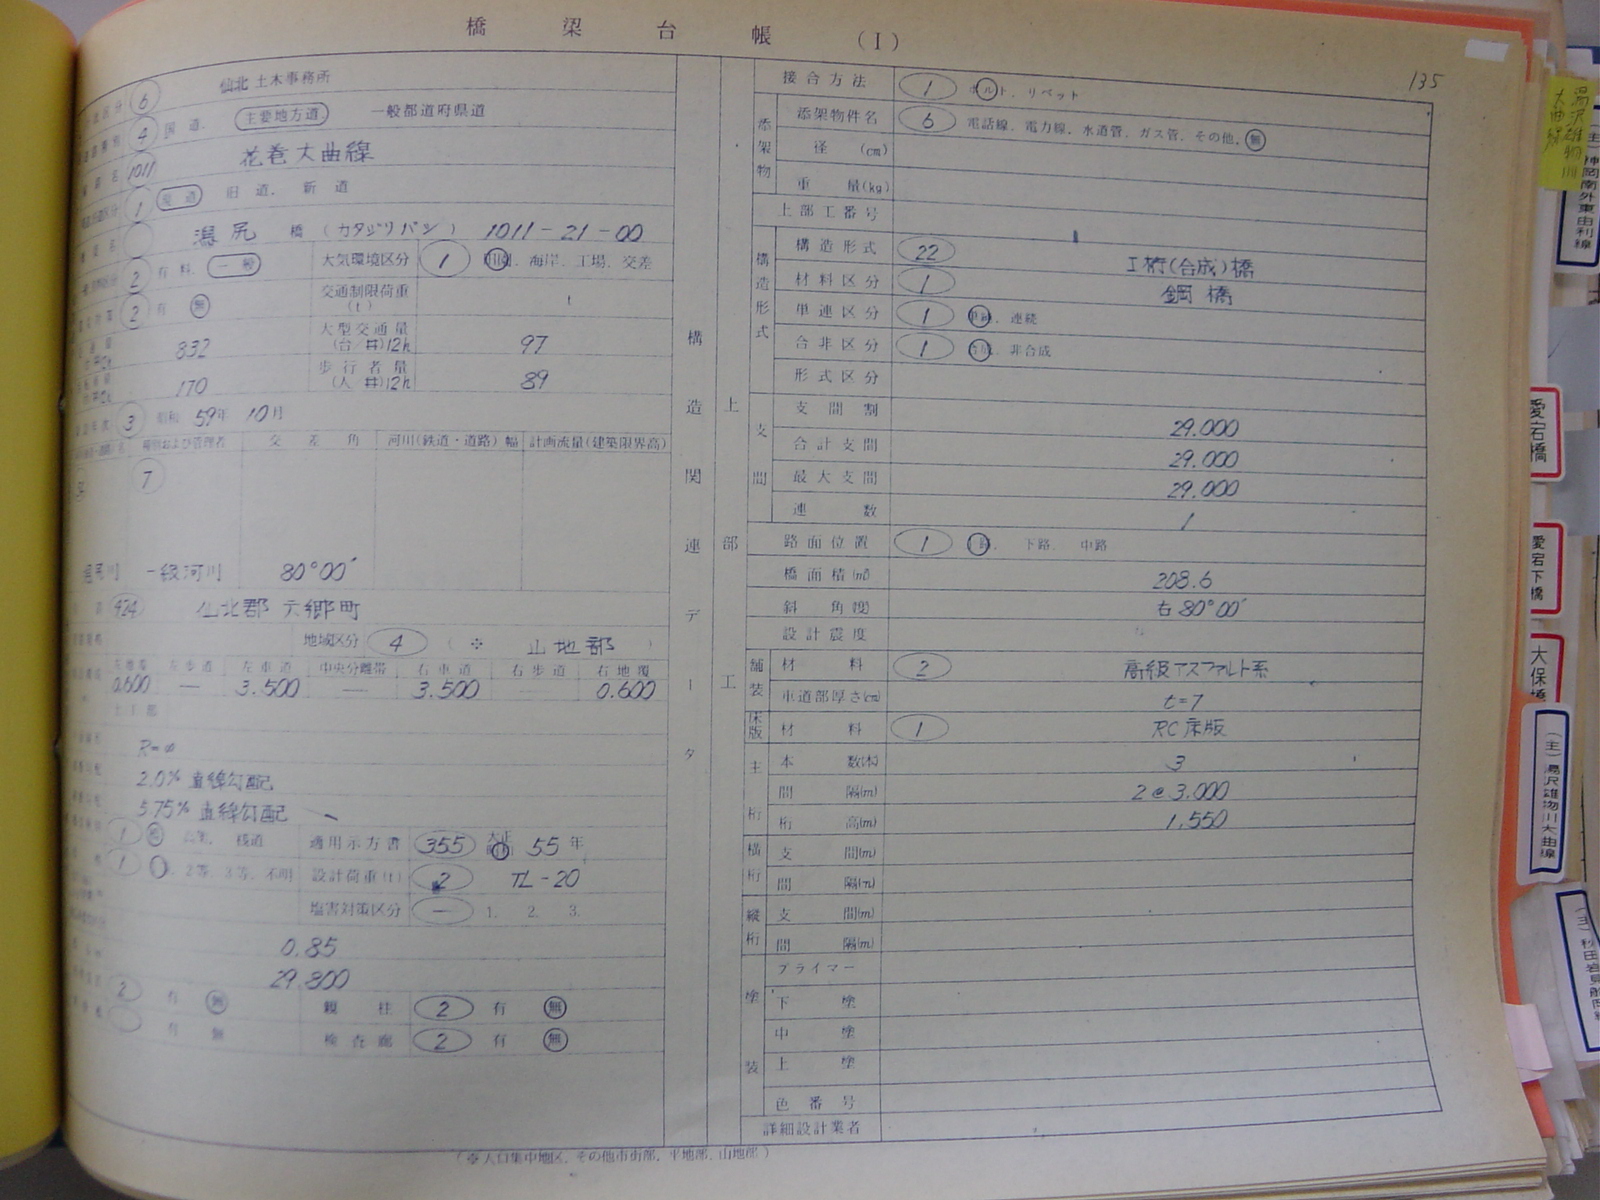 橋梁台帳 (Ⅰ)
135
6 仙北 土木事務所
4 国道. 主要地方道 一般都道府県道
1011 花巻大曲線
1 現道 旧道. 新道
潟尻 橋 (カタジリバシ) 1011-21-00
2 有料. 一般 大気環境区分 1 海岸. 工場. 交差
2 有 無 交通制限荷重(t) t
832 大型交通量(台/12h) 97
170 歩行者量(人 12h) 89
3 昭和 59年 10月
種別および管理者 交差角 河川(鉄道・道路)幅 計画流量(建築限界高)
7
潟尻川 一級河川 80°00′
424 仙北郡 六郷町
地域区分 4 (※ 山地部 )
左地覆 左歩道 左車道 中央分離帯 右車道 右歩道 右地覆
0.600 — 3.500 — 3.500 — 0.600
R=∞
2.0% 直線勾配
5.75% 直線勾配
1 桟道 適用示方書 355 大正 昭和 55年
1 2等, 3等, 不明 設計荷重(t) 2 TL-20
塩害対策区分 — 1. 2. 3.
0.85
29.800
2 有 無 親柱 2 有 無
有 無 検査廊 2 有 無
(※人口集中地区, その他市街部, 平地部, 山地部)
構造関連データ
上部工
接合方法 1 ボルト, リベット
添架物
添架物件名 6 電話線, 電力線, 水道管, ガス管, その他, 無
径 (cm)
重量(kg)
上部工番号
構造形式
構造形式 22 I桁(合成)橋
材料区分 1 鋼橋
単連区分 1 単純, 連続
合非区分 1 合成, 非合成
形式区分
支間
支間割 29.000
合計支間 29.000
最大支間 29.000
連数 1
路面位置 1 上路, 下路 中路
橋面積(㎡) 208.6
斜角(度) 右80°00′
設計震度
舗装
材料 2 高級アスファルト系
車道部厚さ(cm) t=7
床版
材料 1 RC床版
主桁
本数(本) 3
間隔(m) 2@3.000
桁高(m) 1.550
横桁
支間(m)
間隔(m)
縦桁
支間(m)
間隔(m)
塗装
プライマー
下塗
中塗
上塗
色番号
詳細設計業者
湯沢雄物川
大曲線
(主)神岡南外東由利線
愛宕橋
愛宕下橋
大保橋
(主)湯沢雄物川大曲線